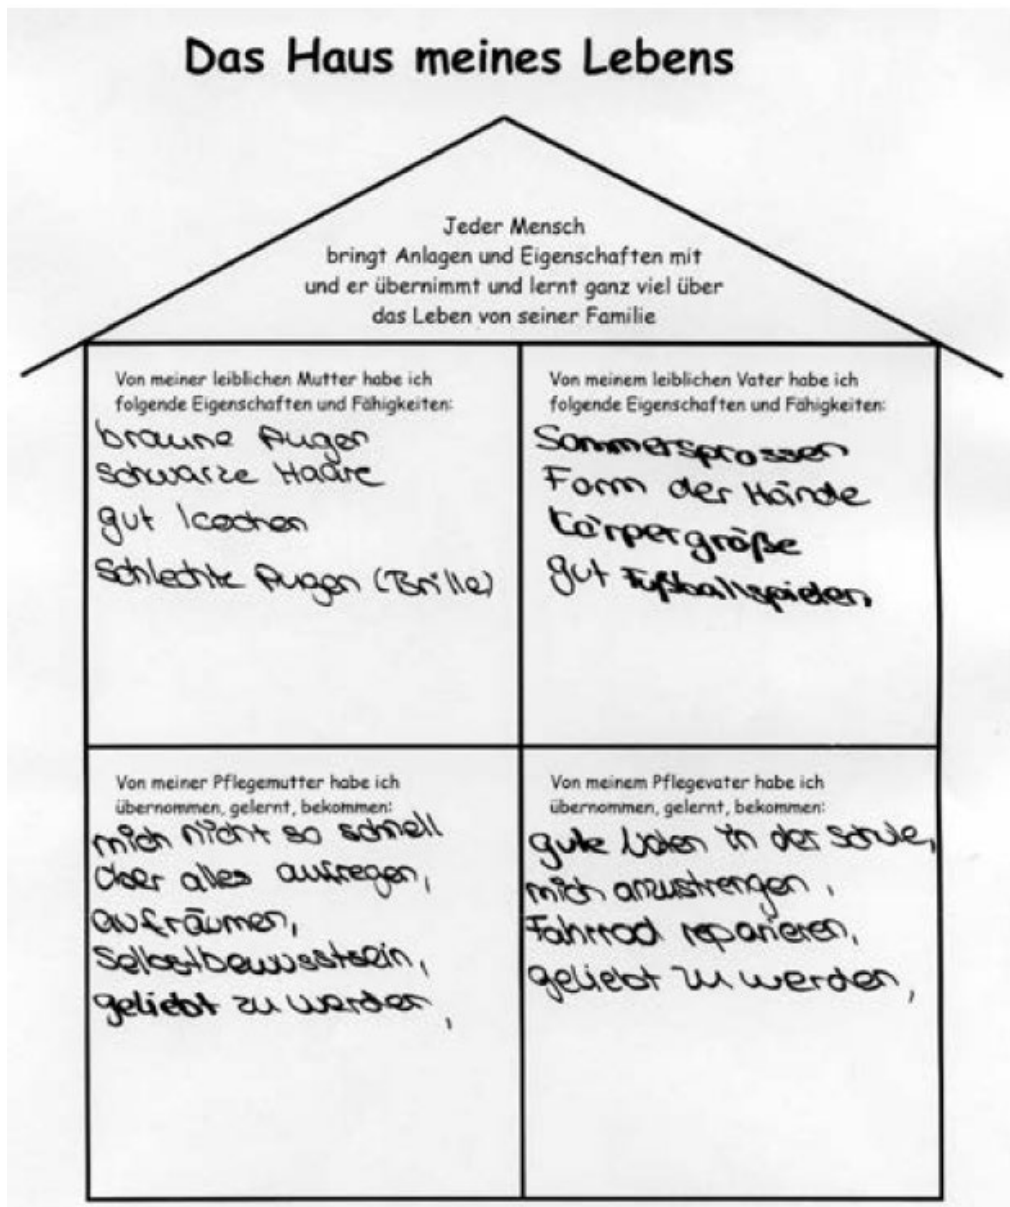 Das Haus meines Lebens
Jeder Mensch
bringt Anlagen und Eigenschaften mit
und er übernimmt und lernt ganz viel über
das Leben von seiner Familie
Von meiner leiblichen Mutter habe ich
folgende Eigenschaften und Fähigkeiten:
braune Augen
schwarze Haare
gut kochen
Schlechte Augen (Brille)
Von meinem leiblichen Vater habe ich
folgende Eigenschaften und Fähigkeiten:
Sommersprossen
Form der Hände
Körpergröße
gut Fußballspielen
Von meiner Pflegemutter habe ich
übernommen, gelernt, bekommen:
mich nicht so schnell
über alles aufregen,
aufräumen,
Selbstbewusstsein,
geliebt zu werden,
Von meinem Pflegevater habe ich
übernommen, gelernt, bekommen:
gute Noten in der Schule,
mich anzustrengen,
Fahrrad reparieren,
geliebt zu werden,